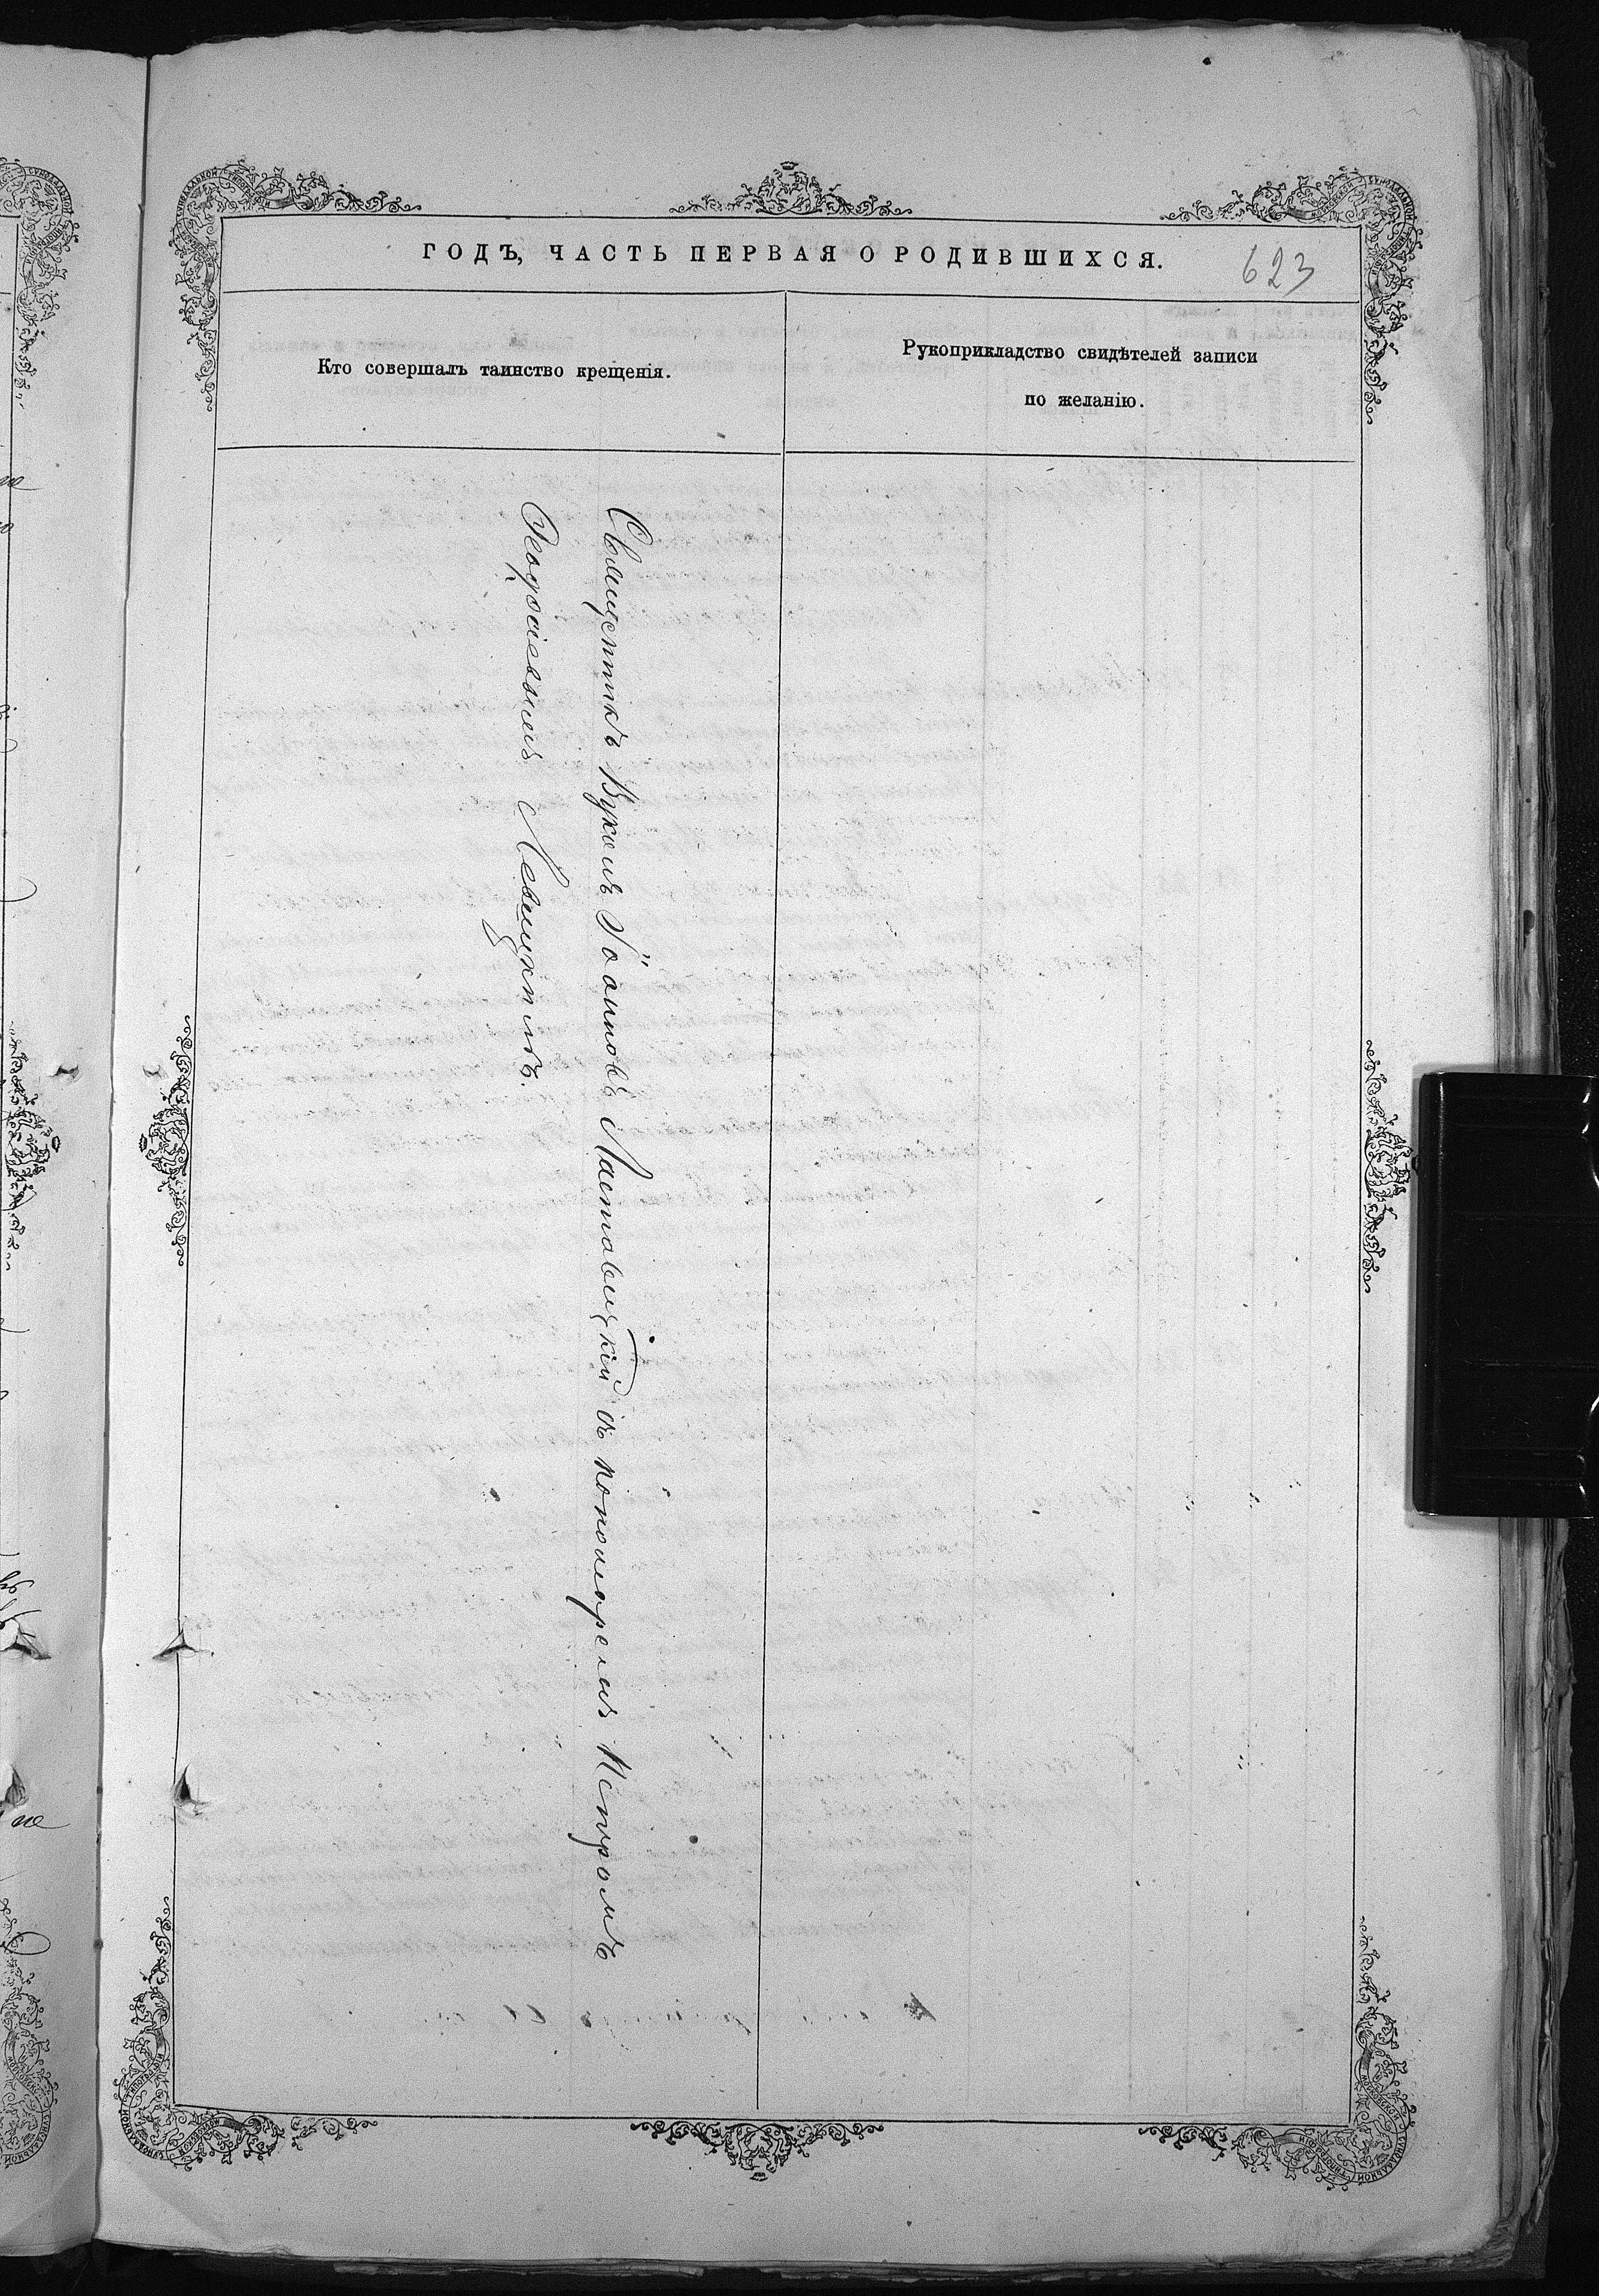 ГОДЪ, ЧАСТЬ ПЕРВАЯ О РОДИВШИХСЯ.
623
Кто совершалъ таинство крещенія.
Рукоприкладство свидѣтелей записи
по желанію.
Священникъ Вуколъ Іоанновъ Ластовицкій съ пономаремъ Петромъ
Левицкимъ.